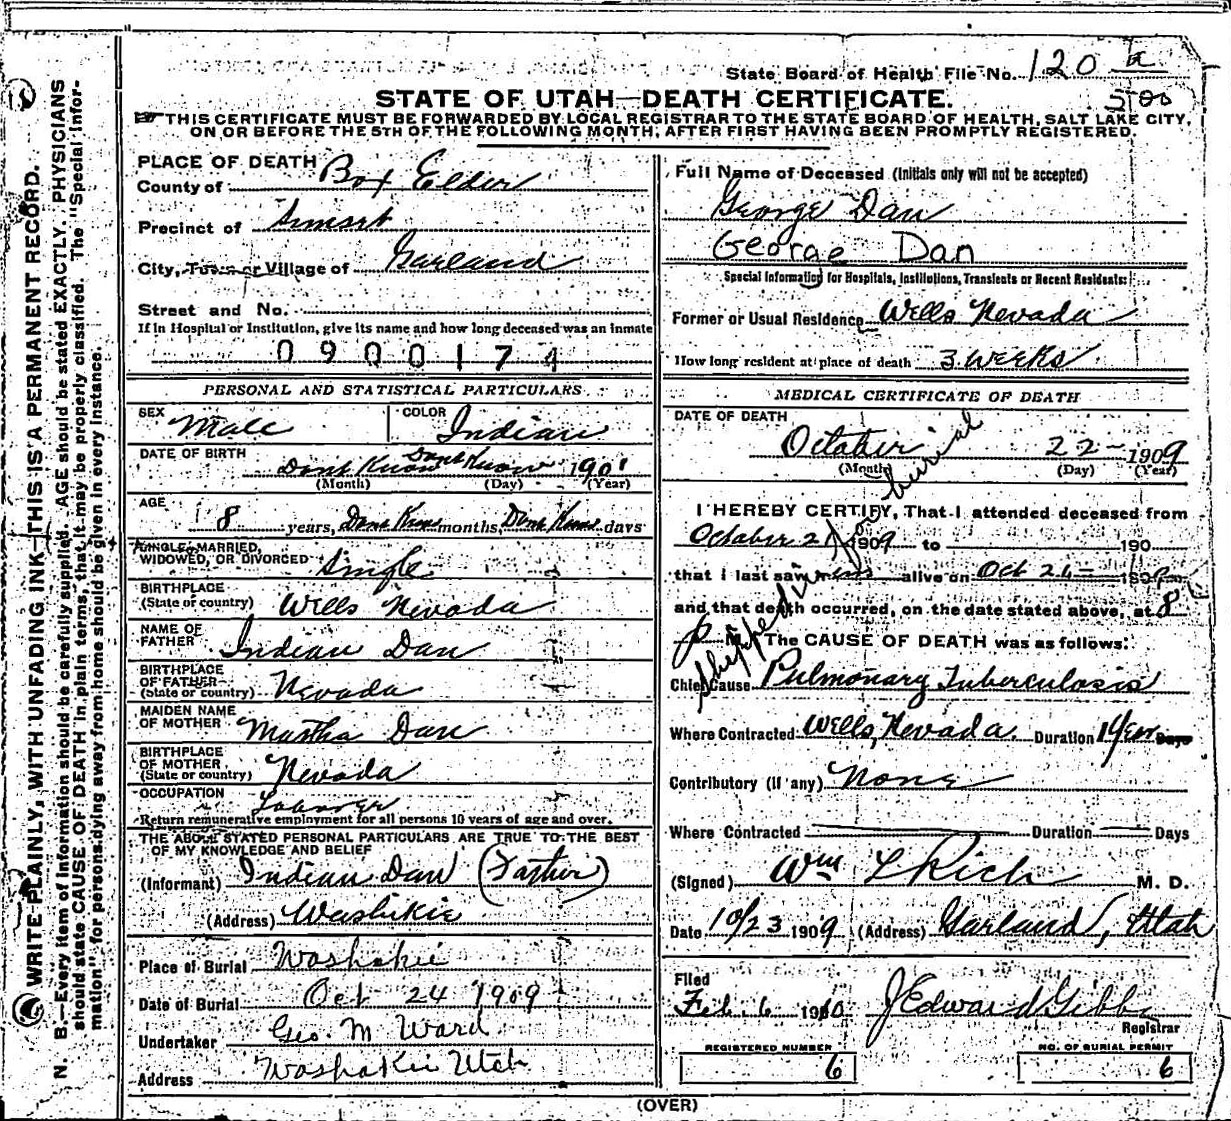 State Board of Health File No. 120 a
500
STATE OF UTAH—DEATH CERTIFICATE.
THIS CERTIFICATE MUST BE FORWARDED BY LOCAL REGISTRAR TO THE STATE BOARD OF HEALTH, SALT LAKE CITY,
ON OR BEFORE THE 5TH OF THE FOLLOWING MONTH, AFTER FIRST HAVING BEEN PROMPTLY REGISTERED.
WRITE PLAINLY, WITH UNFADING INK—THIS IS A PERMANENT RECORD.
N. B.—Every item of information should be carefully supplied. AGE should be stated EXACTLY. PHYSICIANS
should state CAUSE OF DEATH in plain terms, that it may be properly classified. The "Special Infor-
mation" for persons dying away from home should be given in every instance.
PLACE OF DEATH
County of Box Elder
Precinct of
City, Town or Village of Garland
Street and No.
If in Hospital or Institution, give its name and how long deceased was an inmate
0900174
PERSONAL AND STATISTICAL PARTICULARS
SEX Male COLOR Indian
DATE OF BIRTH Dont Know Dont Know 1901
(Month) (Day) (Year)
AGE 8 years, Dont Know months, Dont Know days
SINGLE, MARRIED,
WIDOWED, OR DIVORCED Single
BIRTHPLACE
(State or country) Wells Nevada
NAME OF
FATHER Indian Dan
BIRTHPLACE
OF FATHER
(State or country) Nevada
MAIDEN NAME
OF MOTHER Martha Dan
BIRTHPLACE
OF MOTHER
(State or country) Nevada
OCCUPATION
Return remunerative employment for all persons 10 years of age and over.
THE ABOVE STATED PERSONAL PARTICULARS ARE TRUE TO THE BEST
OF MY KNOWLEDGE AND BELIEF
(Informant) Indian Dan (Father)
(Address) Washikie
Place of Burial Washakie
Date of Burial Oct 24 1909
Undertaker Geo. M Ward
Address Washakie Utah
Full Name of Deceased (Initials only will not be accepted)
George Dan
George Dan
Special Information for Hospitals, Institutions, Transients or Recent Residents:
Former or Usual Residence Wells Nevada
How long resident at place of death 3 weeks
MEDICAL CERTIFICATE OF DEATH
DATE OF DEATH
October 22 1909
(Month) (Day) (Year)
I HEREBY CERTIFY, That I attended deceased from
October 21 1909 to 190
that I last saw him alive on Oct 21 1909
and that death occurred, on the date stated above, at 8
P M. The CAUSE OF DEATH was as follows:
Shipped in for burial
Chief Cause Pulmonary Tuberculosis
Where Contracted Wells, Nevada Duration 1 Year Days
Contributory (if any) None
Where Contracted Duration Days
(Signed) Wm L Rich M. D.
Date 10/23 1909 (Address) Garland, Utah
Filed
Feb. 6 1910 J Edward Gibbs
Registrar
REGISTERED NUMBER NO. OF BURIAL PERMIT
6 6
(OVER)